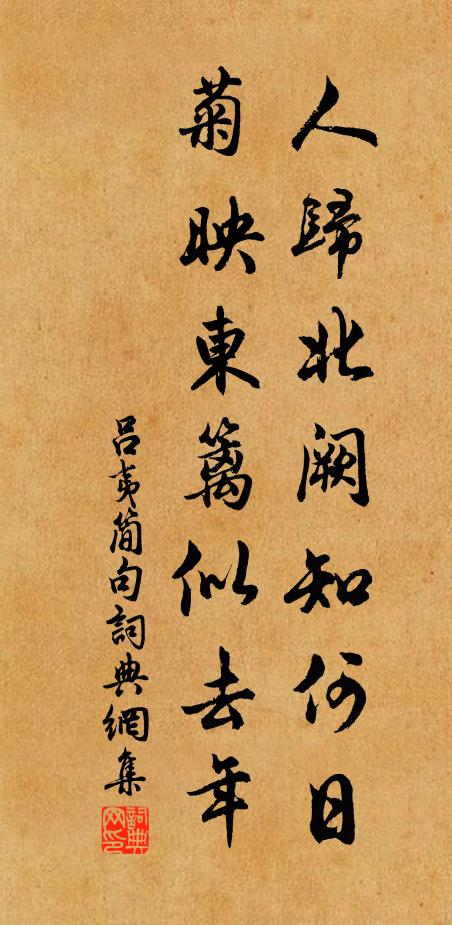 人歸北闕知何日
菊映東篱似去年
吕夷简句詞典網集
詞典网印